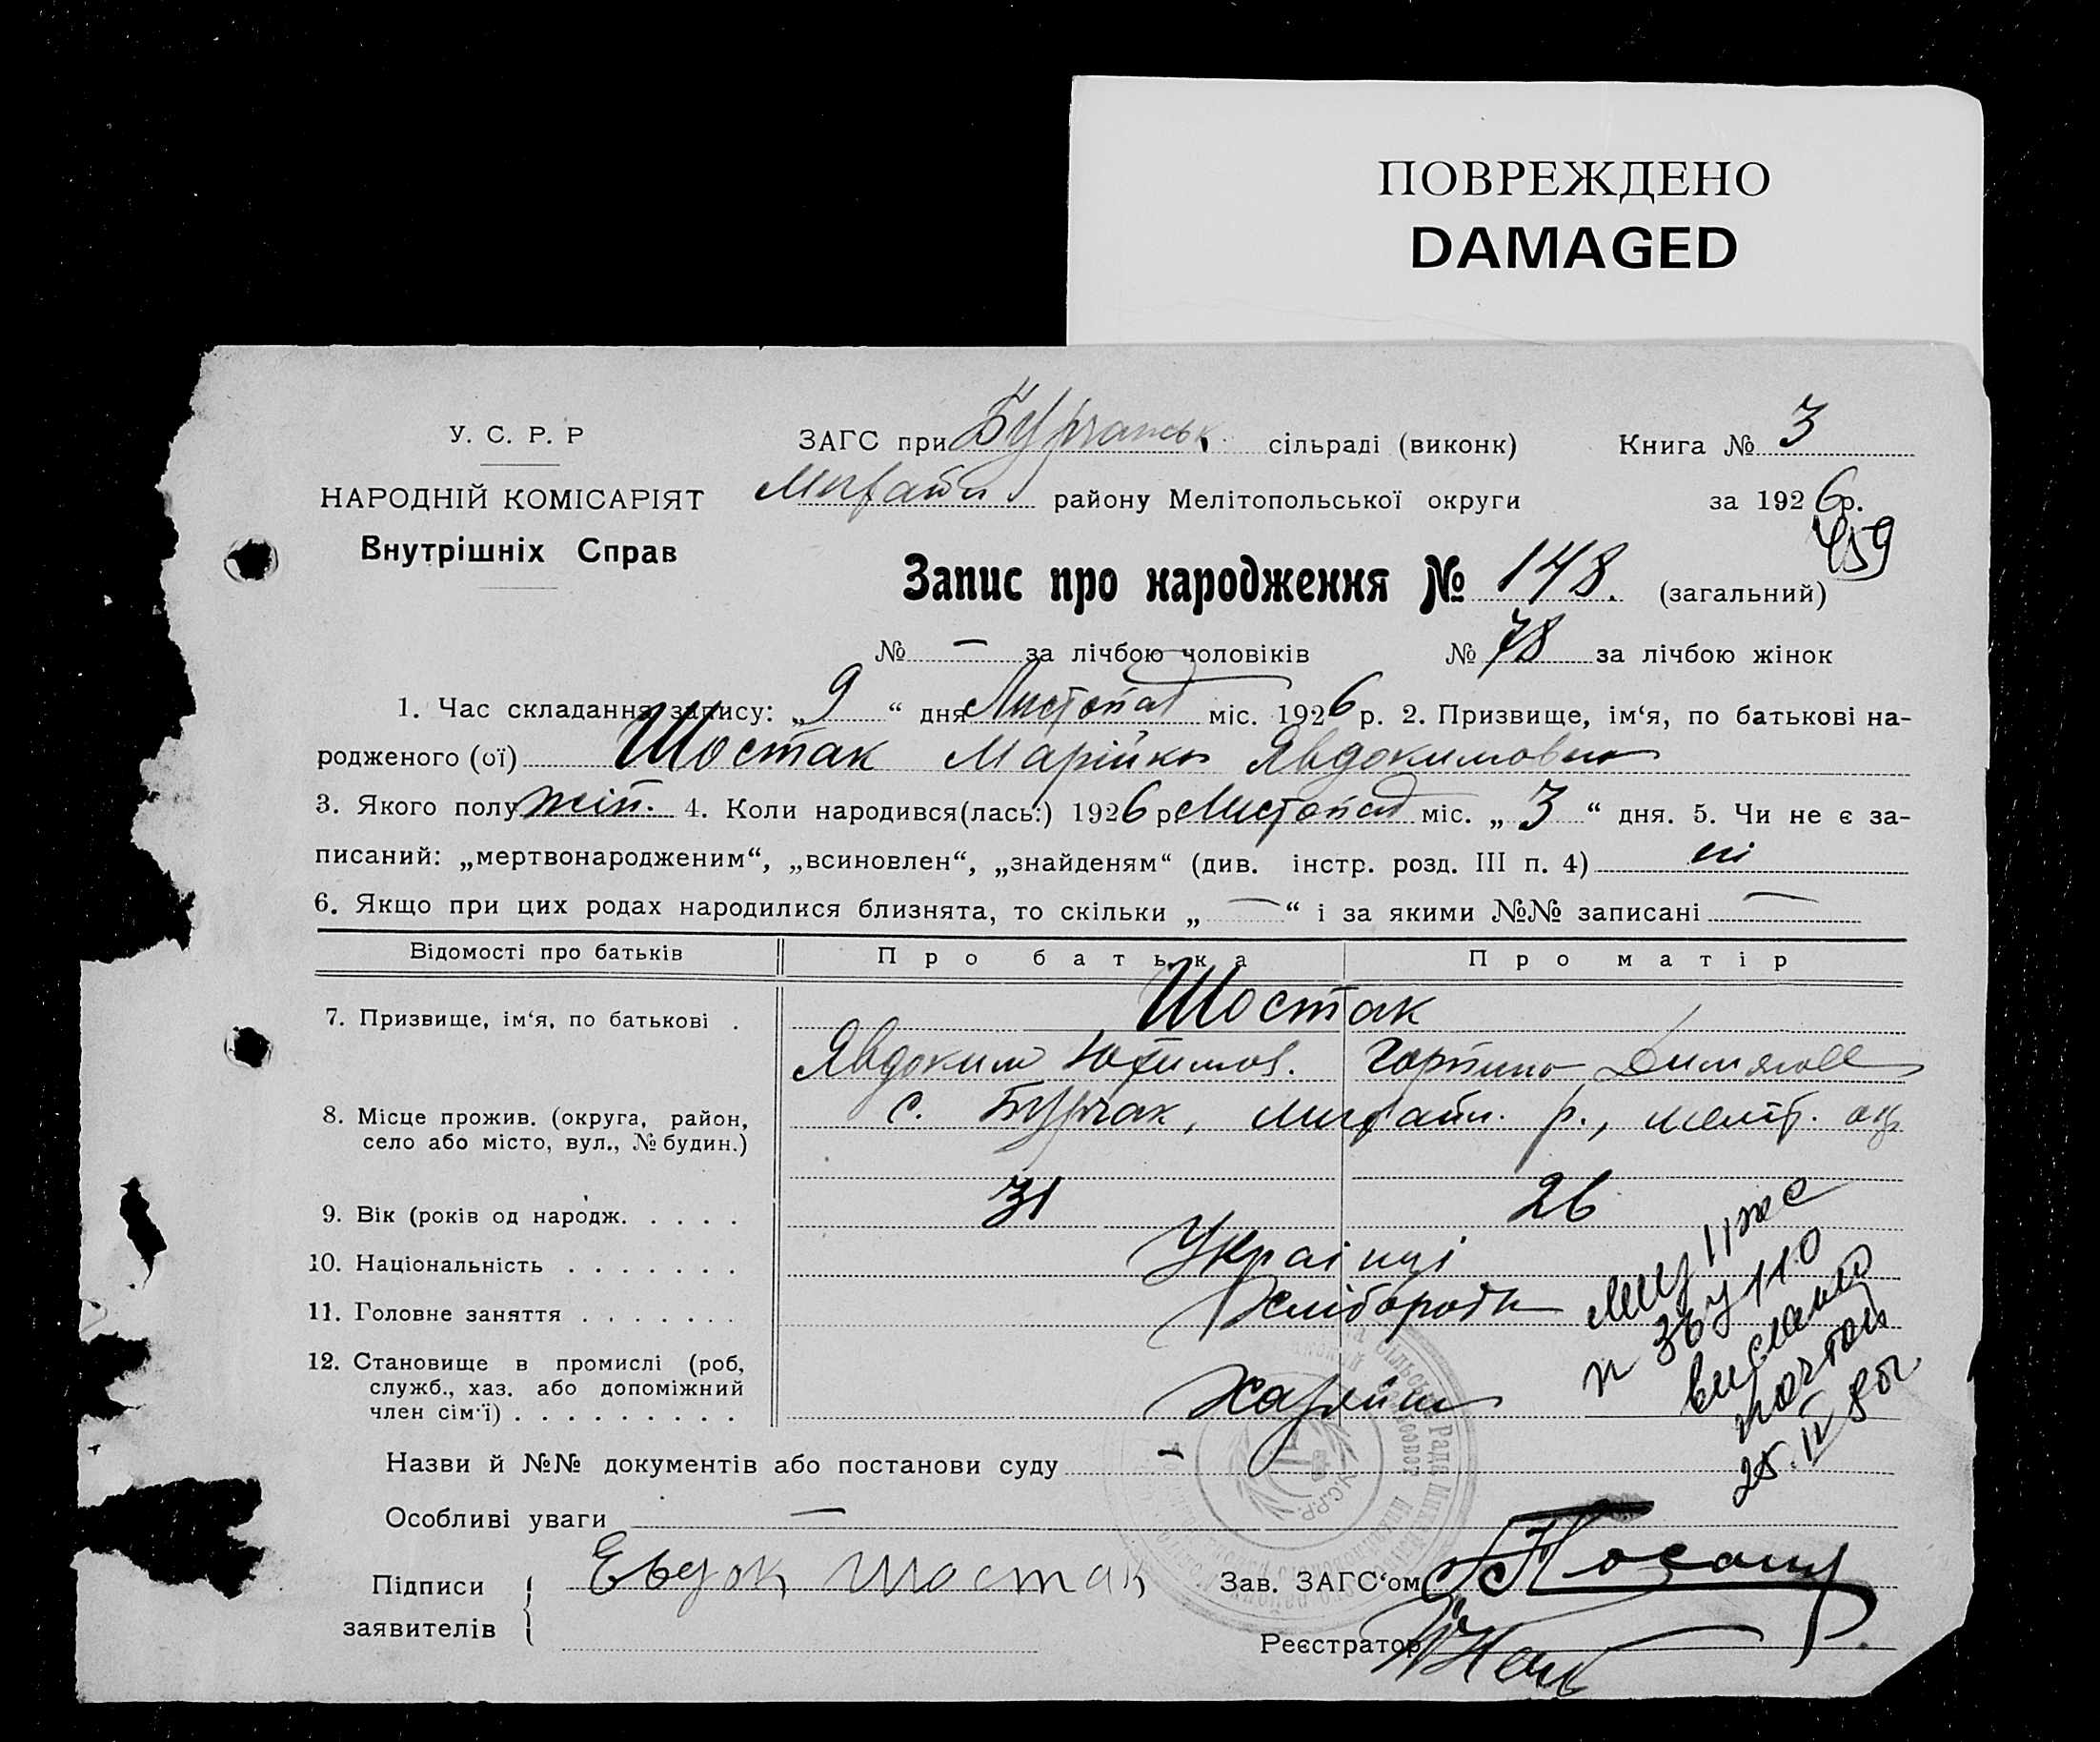 ПОВРЕЖДЕНО
DAMAGED
У. С. Р. Р
НАРОДНІЙ КОМІСАРІЯТ
Внутрішніх Справ
ЗАГС при Бурчанськ. сільраді (виконк) Книга № 3
району Мелітопольської округи за 1926р.
459
Запис про народження № 148. (загальний)
№ — за лічбою чоловіків № 78 за лічбою жінок
1. Час складання запису: „9“ дня Листопад міс. 1926 р. 2. Призвище, ім‘я, по батькові на-
родженого (ої) Шостак Марійка Явдокимовна
3. Якого полу жін. 4. Коли народився(лась:) 1926 р Листопад міс. „3“ дня. 5. Чи не є за-
писаний: „мертвонародженим“, „всиновлен“, „знайденям“ (див. інстр. розд. III п. 4) ні
6. Якщо при цих родах народилися близнята, то скільки „—“ і за якими №№ записані —
Відомості про батьків Про батька Про матір
7. Призвище, ім‘я, по батькові . Шостак
Явдоким Юхимов. Горпина
8. Місце прожив. (округа, район, с. Бурчак, р., меліт. окр
село або місто, вул., № будин.)
9. Вік (років од народж. . . . . 31 26
10. Національність . . . . . . . Українці
11. Головне заняття . . . . . . . Хлібороби
12. Становище в промислі (роб,
служб., хаз. або допоміжний
член сім‘ї) . . . . . . . . . Хазяїни
110
выслано
почтой
25.IV
Назви й №№ документів або постанови суду —
Особливі уваги —
У.С.Р.Р.
Підписи
заявителів
Евдок Шостак
Зав. ЗАГС‘ом
Реєстратор